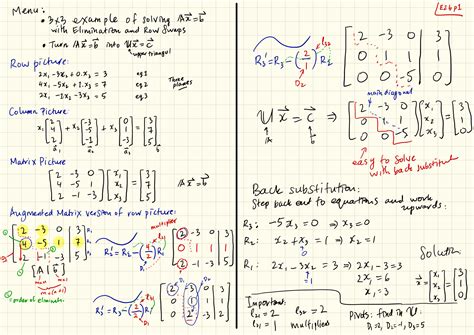 Menu:
• 3x3 example of solving A𝑥⃗=b⃗
with Elimination and Row Swaps
• Turn A𝑥⃗=b⃗ into U𝑥⃗=c⃗
upper triangul
Row picture:
2x₁ -3x₂ +0.x₃ = 3 eq1
4x₁ -5x₂ +1.x₃ = 7 eq2
2x₁ -1x₂ -3x₃ = 5 eq3
Three planes
Column Picture
x₁ [2 4 2] + x₂ [-3 -5 -1] + x₃ [0 1 -3] = [3 7 5]
a⃗₁ a⃗₂ a⃗₃ b⃗
Matrix Picture
[2 -3 0
4 -5 1
2 -1 -3] [x₁ x₂ x₃] = [3 7 5] A𝑥⃗=b⃗
Augmented Matrix version of row picture:
2 -3 0 | 3 R₁
4 -5 1 | 7 R₂
2 -1 -3 | 5 R₃
[A | b⃗]
multiplier
R₂' = R₂ - (4/2) R₁
2 -3 0 | 3
0 1 1 | 1
2 -1 -3 | 5
l₂₁
D₁
R₃' = R₃ - (2/2) R₁
l₃₁
D₁
2 -3 0 | 3
0 1 1 | 1
0 2 -3 | 2
R₃' = R₃ - (2/1) R₂'
l₃₂
D₂
2 -3 0 | 3
0 1 1 | 1
0 0 -5 | 0
main diagonal
U𝑥⃗ = c⃗ ⇒ [2 -3 0
0 1 1
0 0 -5] [x₁ x₂ x₃] = [3 1 0]
easy to solve
with back substitut
Back substitution:
Step back to equations and work
upwards:
R₃: -5x₃ = 0 ⇒ x₃ = 0
R₂: x₂ + x₃ = 1 ⇒ x₂ = 1
R₁: 2x₁ - 3x₂ = 3 ⇒ 2x₁ - 3 = 3
2x₁ = 6
x₁ = 3
Solution
𝑥⃗ = [x₁ x₂ x₃] = [3 1 0]
Important:
l₂₁ = 2 l₃₂ = 2
l₃₁ = 1
Pivots: find in U
D₁=2, D₂=1, D₃=-5